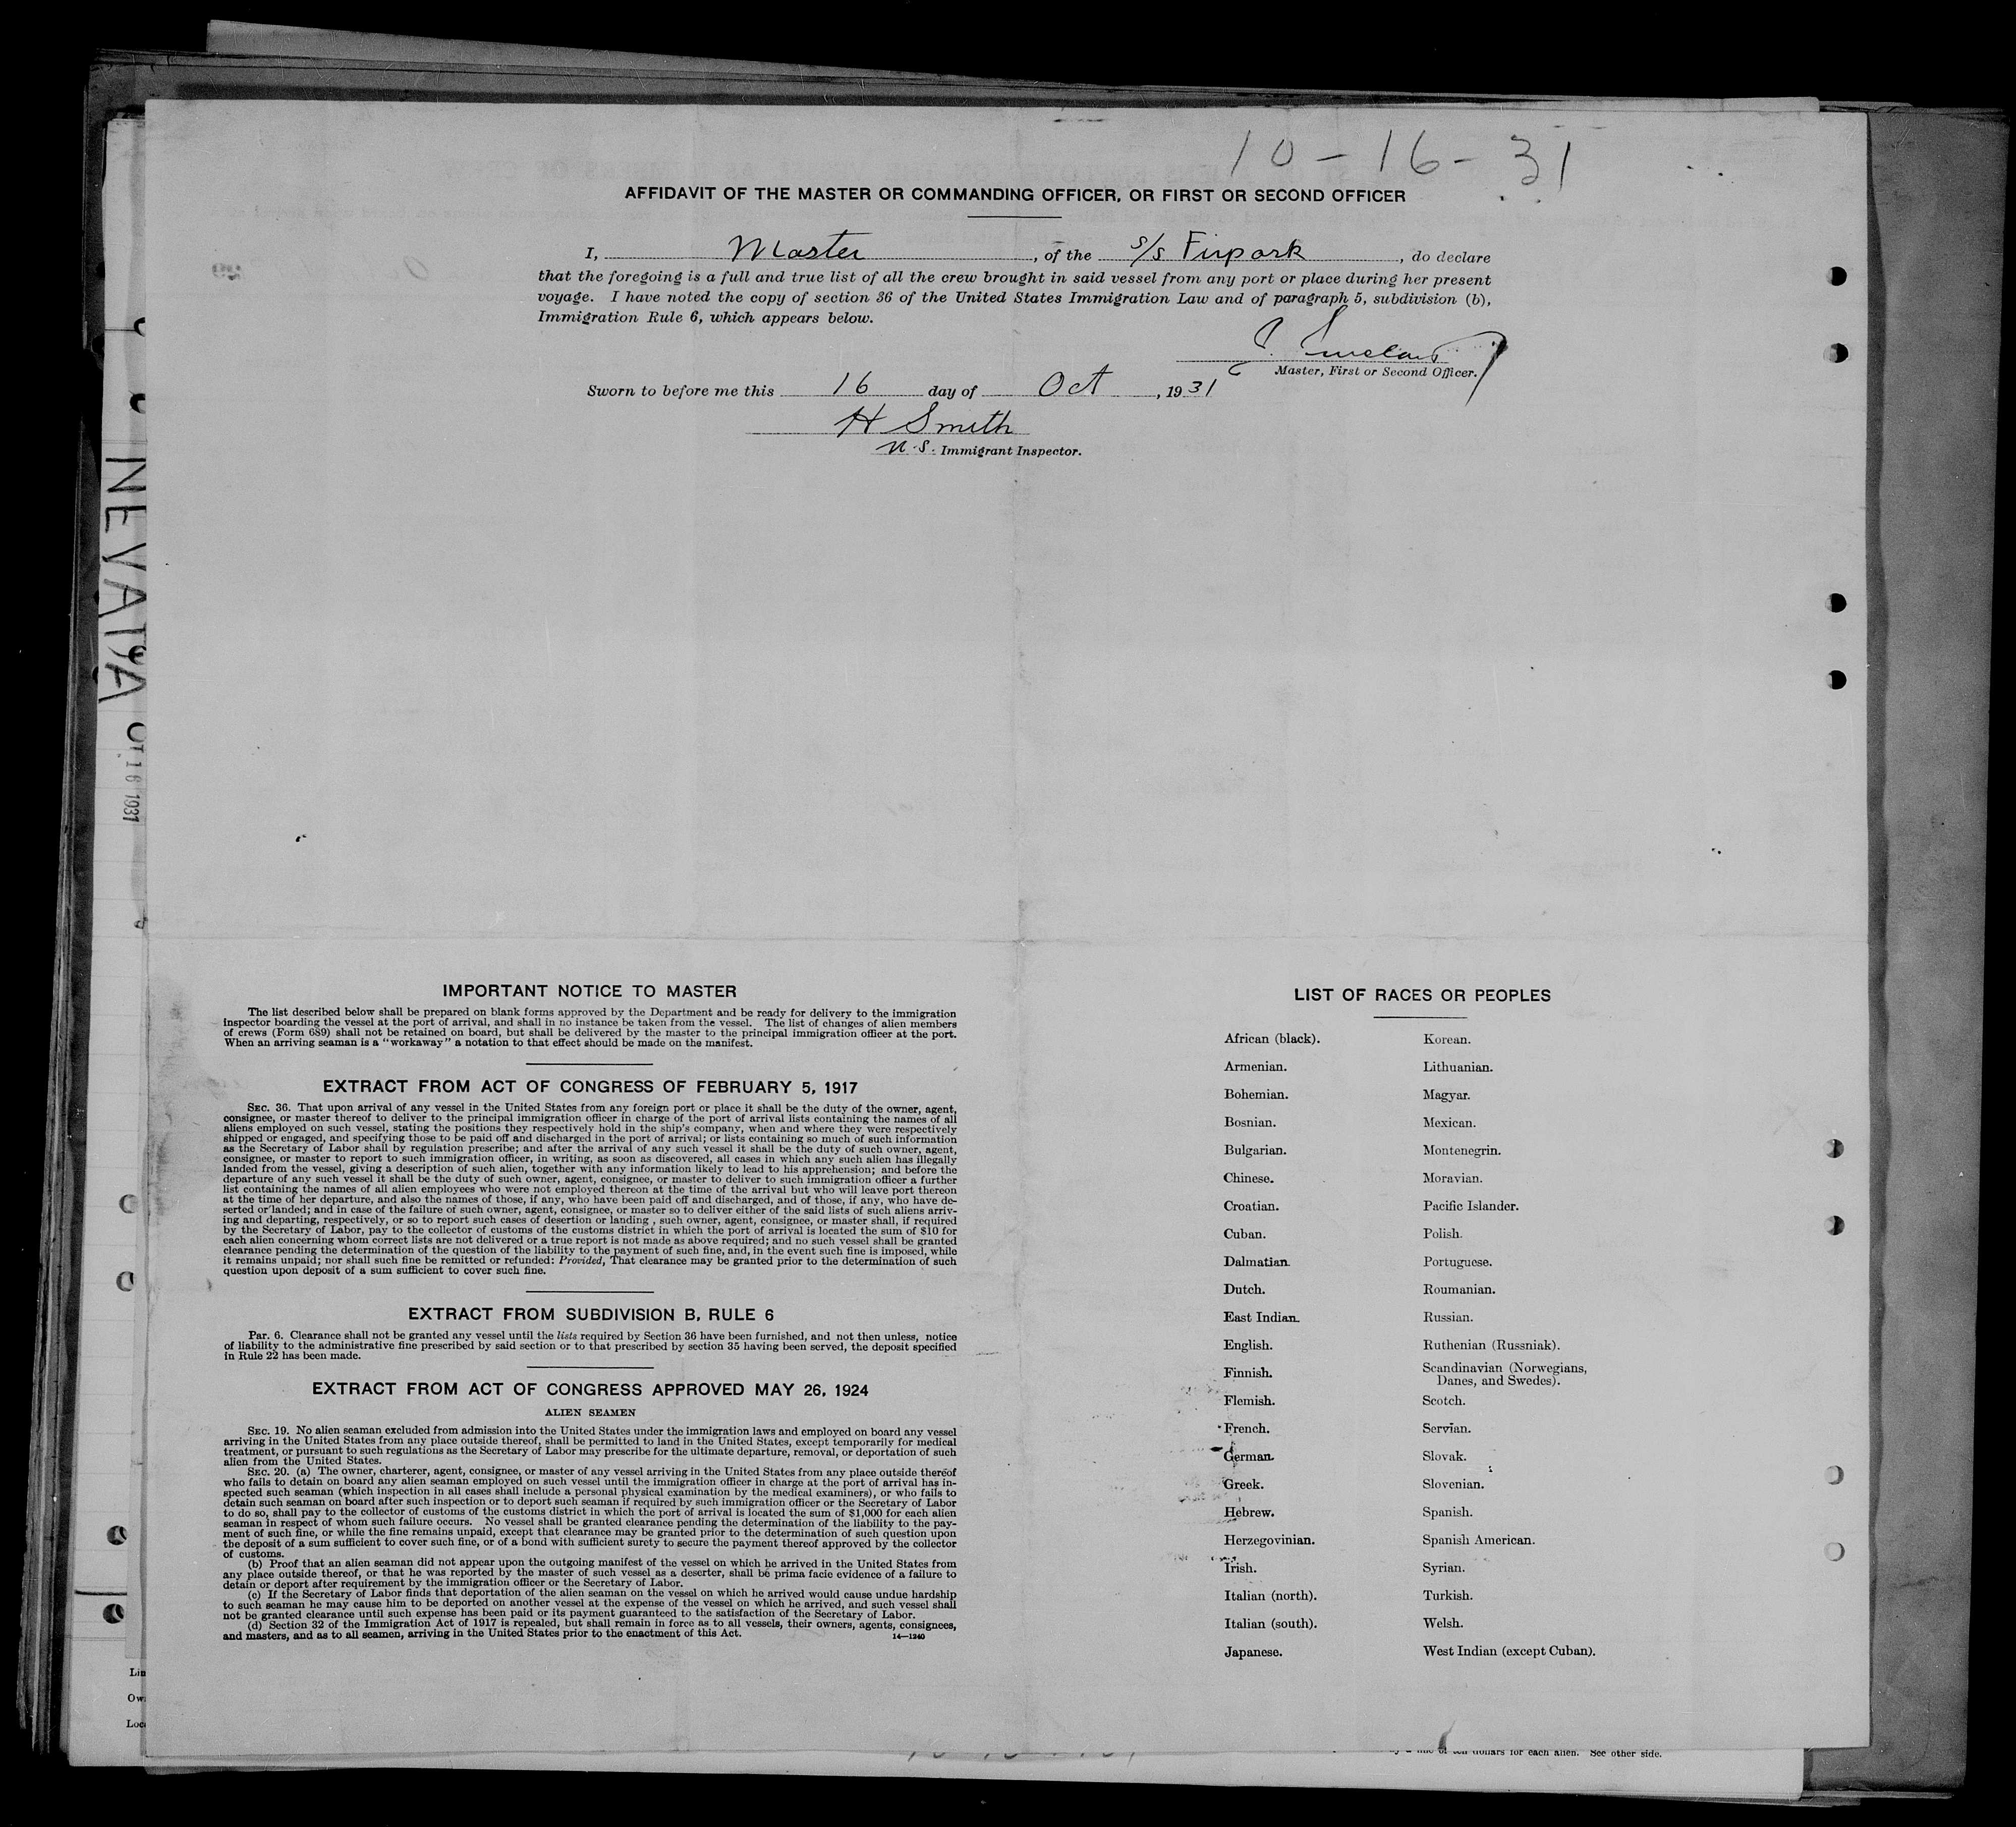 10-16-31
AFFIDAVIT OF THE MASTER OR COMMANDING OFFICER, OR FIRST OR SECOND OFFICER
I, Master, of the s/s Firpark, do declare
that the foregoing is a full and true list of all the crew brought in said vessel from any port or place during her present
voyage. I have noted the copy of section 36 of the United States Immigration Law and of paragraph 5, subdivision (b),
Immigration Rule 6, which appears below.
Master, First or Second Officer.
Sworn to before me this 16 day of Oct, 1931
H Smith
U.S. Immigrant Inspector.
NEVADA
16 1931
IMPORTANT NOTICE TO MASTER
The list described below shall be prepared on blank forms approved by the Department and be ready for delivery to the immigration
inspector boarding the vessel at the port of arrival, and shall in no instance be taken from the vessel. The list of changes of alien members
of crews (Form 689) shall not be retained on board, but shall be delivered by the master to the principal immigration officer at the port.
When an arriving seaman is a "workaway" a notation to that effect should be made on the manifest.
EXTRACT FROM ACT OF CONGRESS OF FEBRUARY 5, 1917
SEC. 36. That upon arrival of any vessel in the United States from any foreign port or place it shall be the duty of the owner, agent,
consignee, or master thereof to deliver to the principal immigration officer in charge of the port of arrival lists containing the names of all
aliens employed on such vessel, stating the positions they respectively hold in the ship's company, when and where they were respectively
shipped or engaged, and specifying those to be paid off and discharged in the port of arrival; or lists containing so much of such information
as the Secretary of Labor shall by regulation prescribe; and after the arrival of any such vessel it shall be the duty of such owner, agent,
consignee, or master to report to such immigration officer, in writing, as soon as discovered, all cases in which any such alien has illegally
landed from the vessel, giving a description of such alien, together with any information likely to lead to his apprehension; and before the
departure of any such vessel it shall be the duty of such owner, agent, consignee, or master to deliver to such immigration officer a further
list containing the names of all alien employees who were not employed thereon at the time of the arrival but who will leave port thereon
at the time of her departure, and also the names of those, if any, who have been paid off and discharged, and of those, if any, who have de-
serted or landed; and in case of the failure of such owner, agent, consignee, or master so to deliver either of the said lists of such aliens arriv-
ing and departing, respectively, or so to report such cases of desertion or landing, such owner, agent, consignee, or master shall, if required
by the Secretary of Labor, pay to the collector of customs of the customs district in which the port of arrival is located the sum of $10 for
each alien concerning whom correct lists are not delivered or a true report is not made as above required; and no such vessel shall be granted
clearance pending the determination of the question of the liability to the payment of such fine, and, in the event such fine is imposed, while
it remains unpaid; nor shall such fine be remitted or refunded: Provided, That clearance may be granted prior to the determination of such
question upon deposit of a sum sufficient to cover such fine.
EXTRACT FROM SUBDIVISION B, RULE 6
Par. 6. Clearance shall not be granted any vessel until the lists required by Section 36 have been furnished, and not then unless, notice
of liability to the administrative fine prescribed by said section or to that prescribed by section 35 having been served, the deposit specified
in Rule 22 has been made.
EXTRACT FROM ACT OF CONGRESS APPROVED MAY 26, 1924
ALIEN SEAMEN
SEC. 19. No alien seaman excluded from admission into the United States under the immigration laws and employed on board any vessel
arriving in the United States from any place outside thereof, shall be permitted to land in the United States, except temporarily for medical
treatment, or pursuant to such regulations as the Secretary of Labor may prescribe for the ultimate departure, removal, or deportation of such
alien from the United States.
SEC. 20. (a) The owner, charterer, agent, consignee, or master of any vessel arriving in the United States from any place outside thereof
who fails to detain on board any alien seaman employed on such vessel until the immigration officer in charge at the port of arrival has in-
spected such seaman (which inspection in all cases shall include a personal physical examination by the medical examiners), or who fails to
detain such seaman on board after such inspection or to deport such seaman if required by such immigration officer or the Secretary of Labor
to do so, shall pay to the collector of customs of the customs district in which the port of arrival is located the sum of $1,000 for each alien
seaman in respect of whom such failure occurs. No vessel shall be granted clearance pending the determination of the liability to the pay-
ment of such fine, or while the fine remains unpaid, except that clearance may be granted prior to the determination of such question upon
the deposit of a sum sufficient to cover such fine, or of a bond with sufficient surety to secure the payment thereof approved by the collector
of customs.
(b) Proof that an alien seaman did not appear upon the outgoing manifest of the vessel on which he arrived in the United States from
any place outside thereof, or that he was reported by the master of such vessel as a deserter, shall be prima facie evidence of a failure to
detain or deport after requirement by the immigration officer or the Secretary of Labor.
(c) If the Secretary of Labor finds that deportation of the alien seaman on the vessel on which he arrived would cause undue hardship
to such seaman he may cause him to be deported on another vessel at the expense of the vessel on which he arrived, and such vessel shall
not be granted clearance until such expense has been paid or its payment guaranteed to the satisfaction of the Secretary of Labor.
(d) Section 32 of the Immigration Act of 1917 is repealed, but shall remain in force as to all vessels, their owners, agents, consignees,
and masters, and as to all seamen, arriving in the United States prior to the enactment of this Act.
14—1240
LIST OF RACES OR PEOPLES
African (black).
Armenian.
Bohemian.
Bosnian.
Bulgarian.
Chinese.
Croatian.
Cuban.
Dalmatian.
Dutch.
East Indian.
English.
Finnish.
Flemish.
French.
German.
Greek.
Hebrew.
Herzegovinian.
Irish.
Italian (north).
Italian (south).
Japanese.
Korean.
Lithuanian.
Magyar.
Mexican.
Montenegrin.
Moravian.
Pacific Islander.
Polish.
Portuguese.
Roumanian.
Russian.
Ruthenian (Russniak).
Scandinavian (Norwegians,
Danes, and Swedes).
Scotch.
Servian.
Slovak.
Slovenian.
Spanish.
Spanish American.
Syrian.
Turkish.
Welsh.
West Indian (except Cuban).
dollars for each alien. See other side.